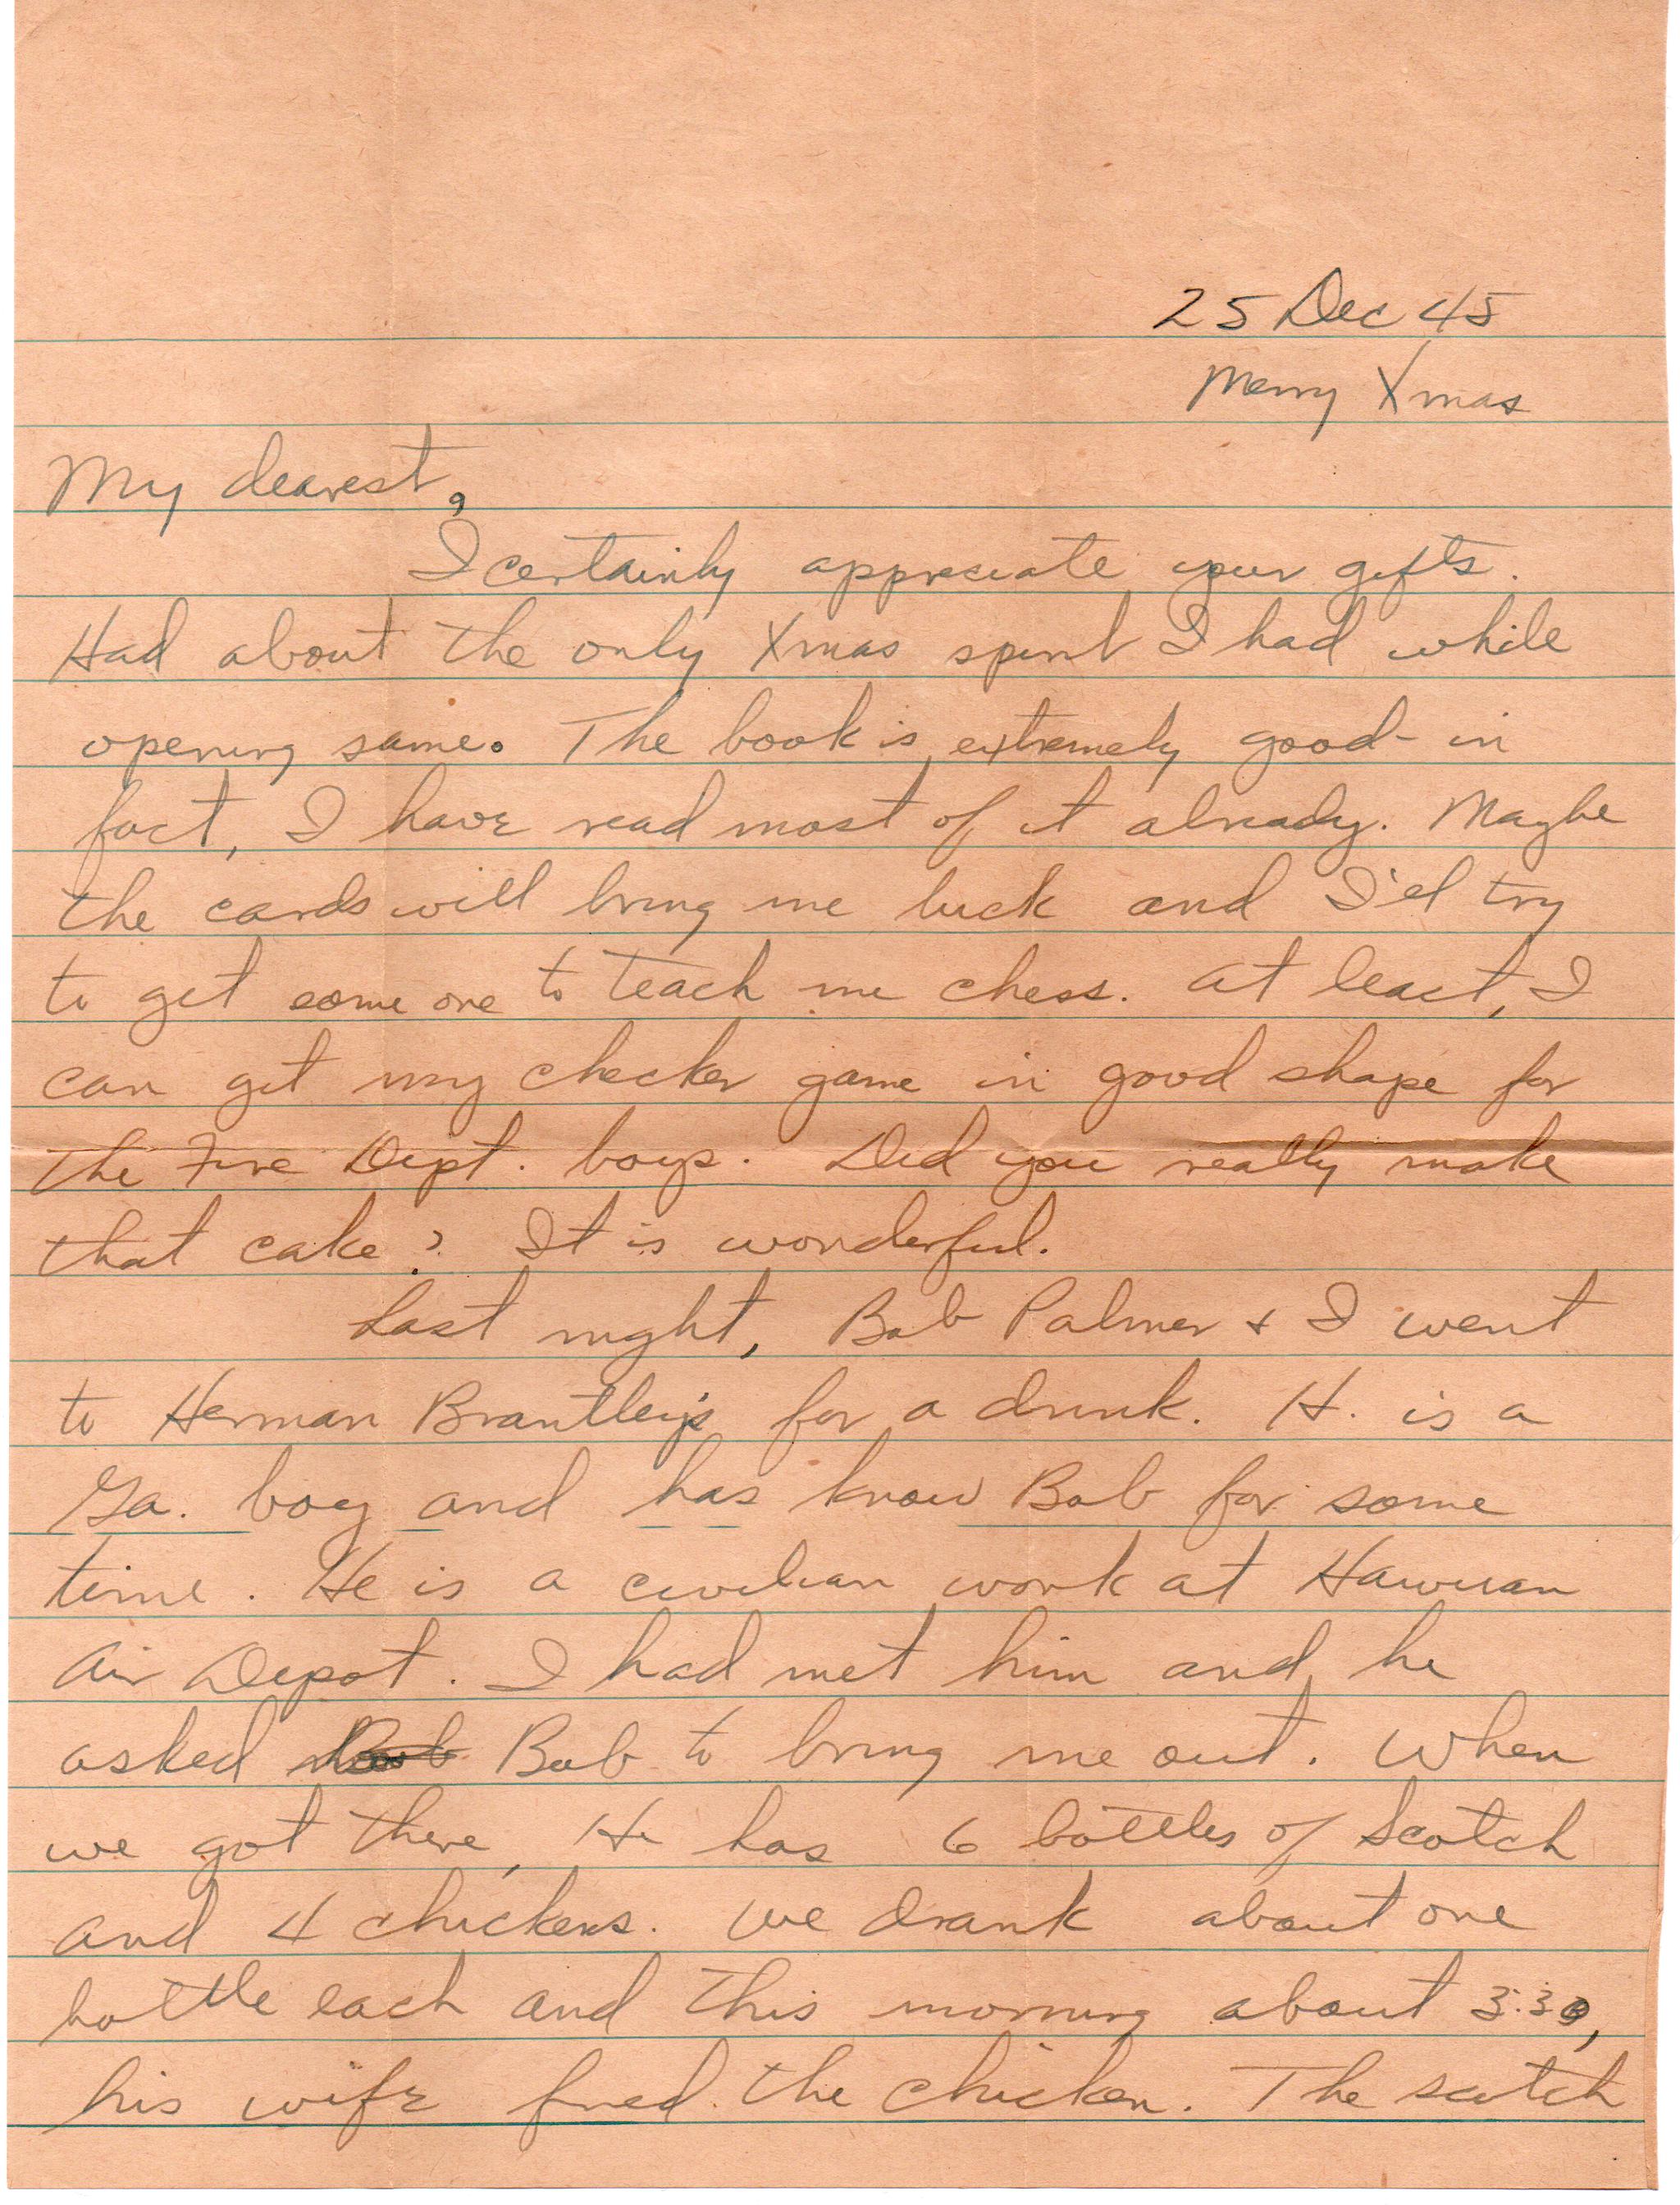 25 Dec 45
Merry Xmas
My dearest,
I certainly appreciate your gifts.
Had about the only Xmas spirit I had while
opening same. The book is extremely good - in
fact, I have read most of it already. Maybe
the cards will bring me luck and I'el try
to get some one to teach me chess. At least, I
can get my checker game in good shape for
the Fire Dept. boys. Did you really make
that cake? It is wonderful.
Last night, Bob Palmer + I went
to Herman Brantley's for a drink. H. is a
Ga. boy and has know Bob for some
time. He is a civilian work at Hawiian
Air Depot. I had met him and he
asked Bob to bring me out. When
we got there, He has 6 bottles of Scotch
and 4 chickens. We drank about one
bottle each and this morning about 3:30,
his wife fried the chicken. The scotch